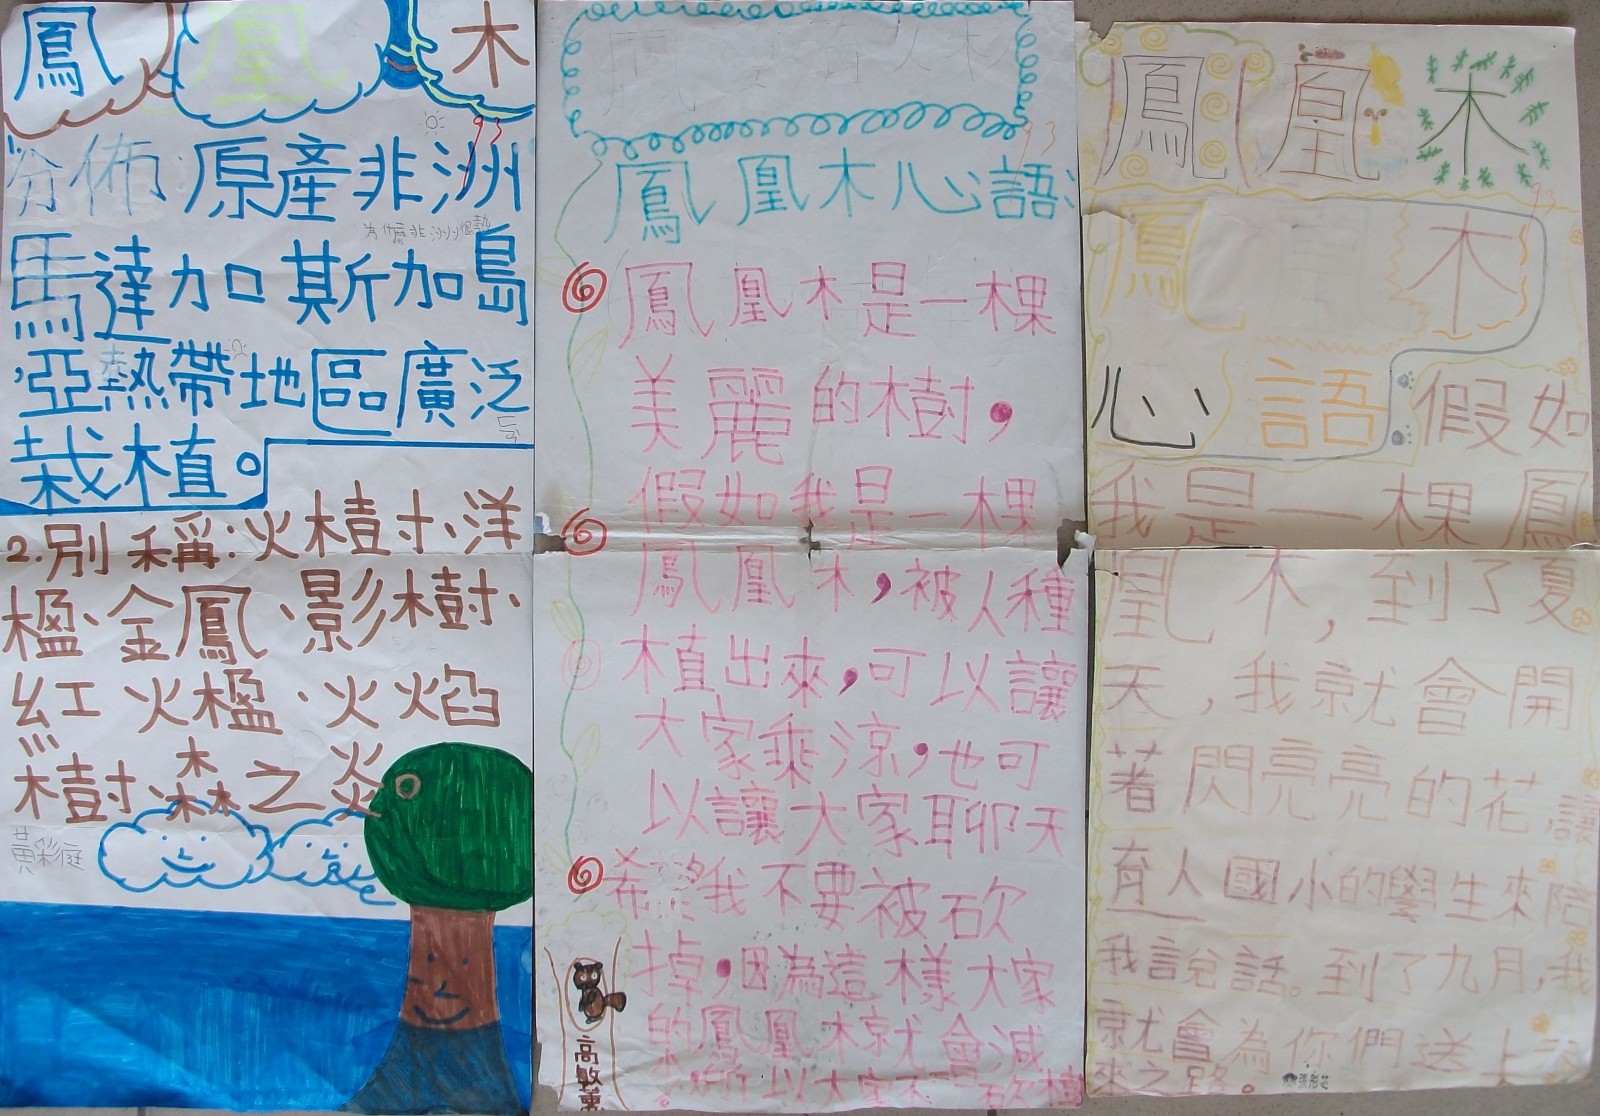 鳳凰木
93
1.分佈:原產非洲
馬達加斯加島
,亞熱帶地區廣泛
栽植。
2.別稱:火樹、洋
楹、金鳳、影樹、
紅火楹、火焰
樹、森之炎
黃彩庭
93
鳳凰木心語
鳳凰木是一棵
美麗的樹,
假如我是一棵
鳳凰木,被人種
植出來,可以讓
大家乘涼,也可
以讓大家聊天
希望我不要被砍
掉,因為這樣大家
的鳳凰木就會減
所以大家不 砍樹
高敏
鳳凰木
93
鳳凰木
心語 假如
我是一棵鳳
凰木,到了夏
天,我就會開
著閃亮亮的花,讓
育人國小的學生來陪
我說話。到了九月,我
就會為你們送上
來之路。